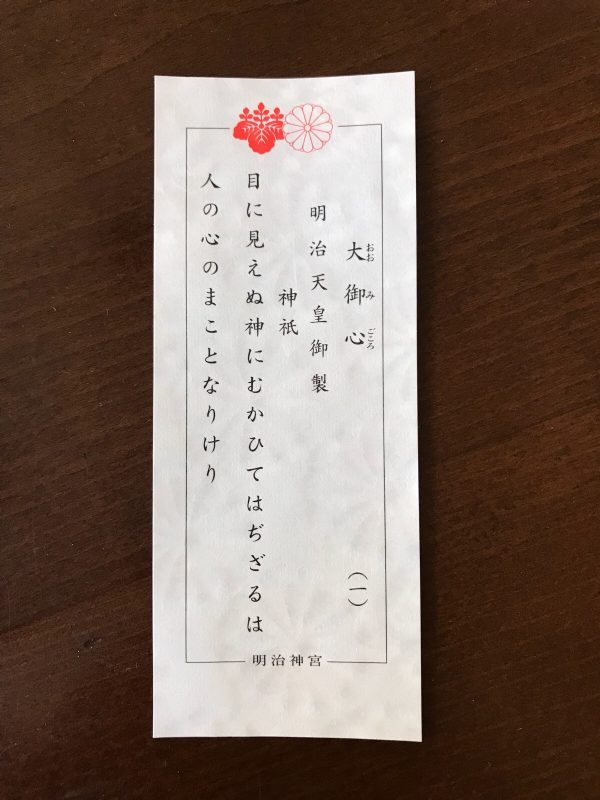 大御心 (一)
おおみごころ
明治天皇御製
神祇
目に見えぬ神にむかひてはぢざるは
人の心のまことなりけり
明治神宮